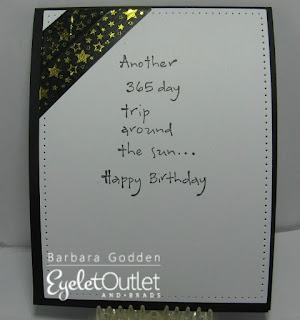 Another
365 day
trip
around
the sun...
Happy Birthday
Barbara Godden
Eyelet Outlet
AND-BRADS